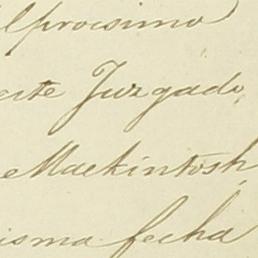 el procsimo
este Juzgado,
e Mackintosh,
isma fecha